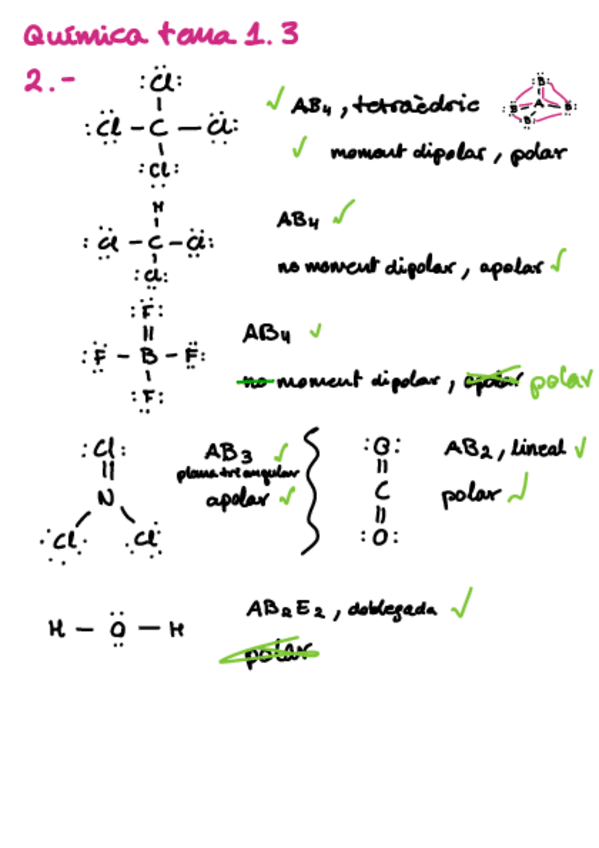 Química tema 1.3
2.-
:Cl:
:Cl - C - Cl:
:Cl:
✓ AB4, tetraèdric
B
B A B
B
✓ moment dipolar, polar
H
:Cl - C - Cl:
:Cl:
AB4 ✓
no moment dipolar, apolar ✓
:F:
||
:F - B - F:
:F:
AB4 ✓
no moment dipolar, apolar polar
:Cl:
||
N
:Cl: :Cl:
AB3 ✓
plana triangular
apolar ✓
:O:
||
C
||
:O:
AB2, lineal ✓
polar ✓
H - O - H
AB2E2, doblegada ✓
polar